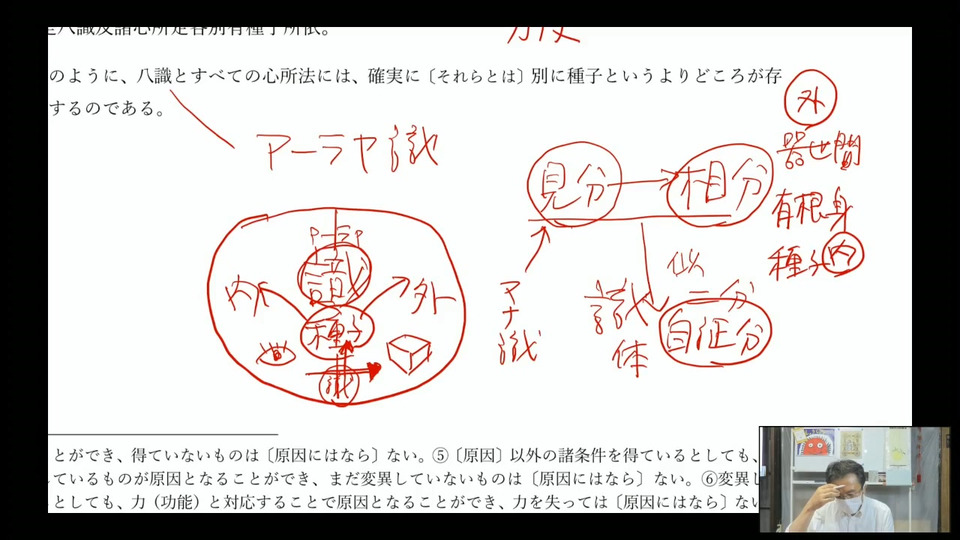 八識及諸心所定各別有種子所依。
のように、八識とすべての心所法には、確実に〔それらとは〕別に種子というよりどころが存
するのである。
アーラヤ識
外
器世間
有根身
種子 内
見分 → 相分
マナ識
識体
似二分
自証分
識
内
外
種子
識
ことができ、得ていないものは〔原因にはなら〕ない。⑤〔原因〕以外の諸条件を得ているとしても、
ているものが原因となることができ、まだ変異していないものは〔原因にはなら〕ない。⑥変異し
としても、力（功能）と対応することで原因となることができ、力を失っては〔原因にはなら〕ない